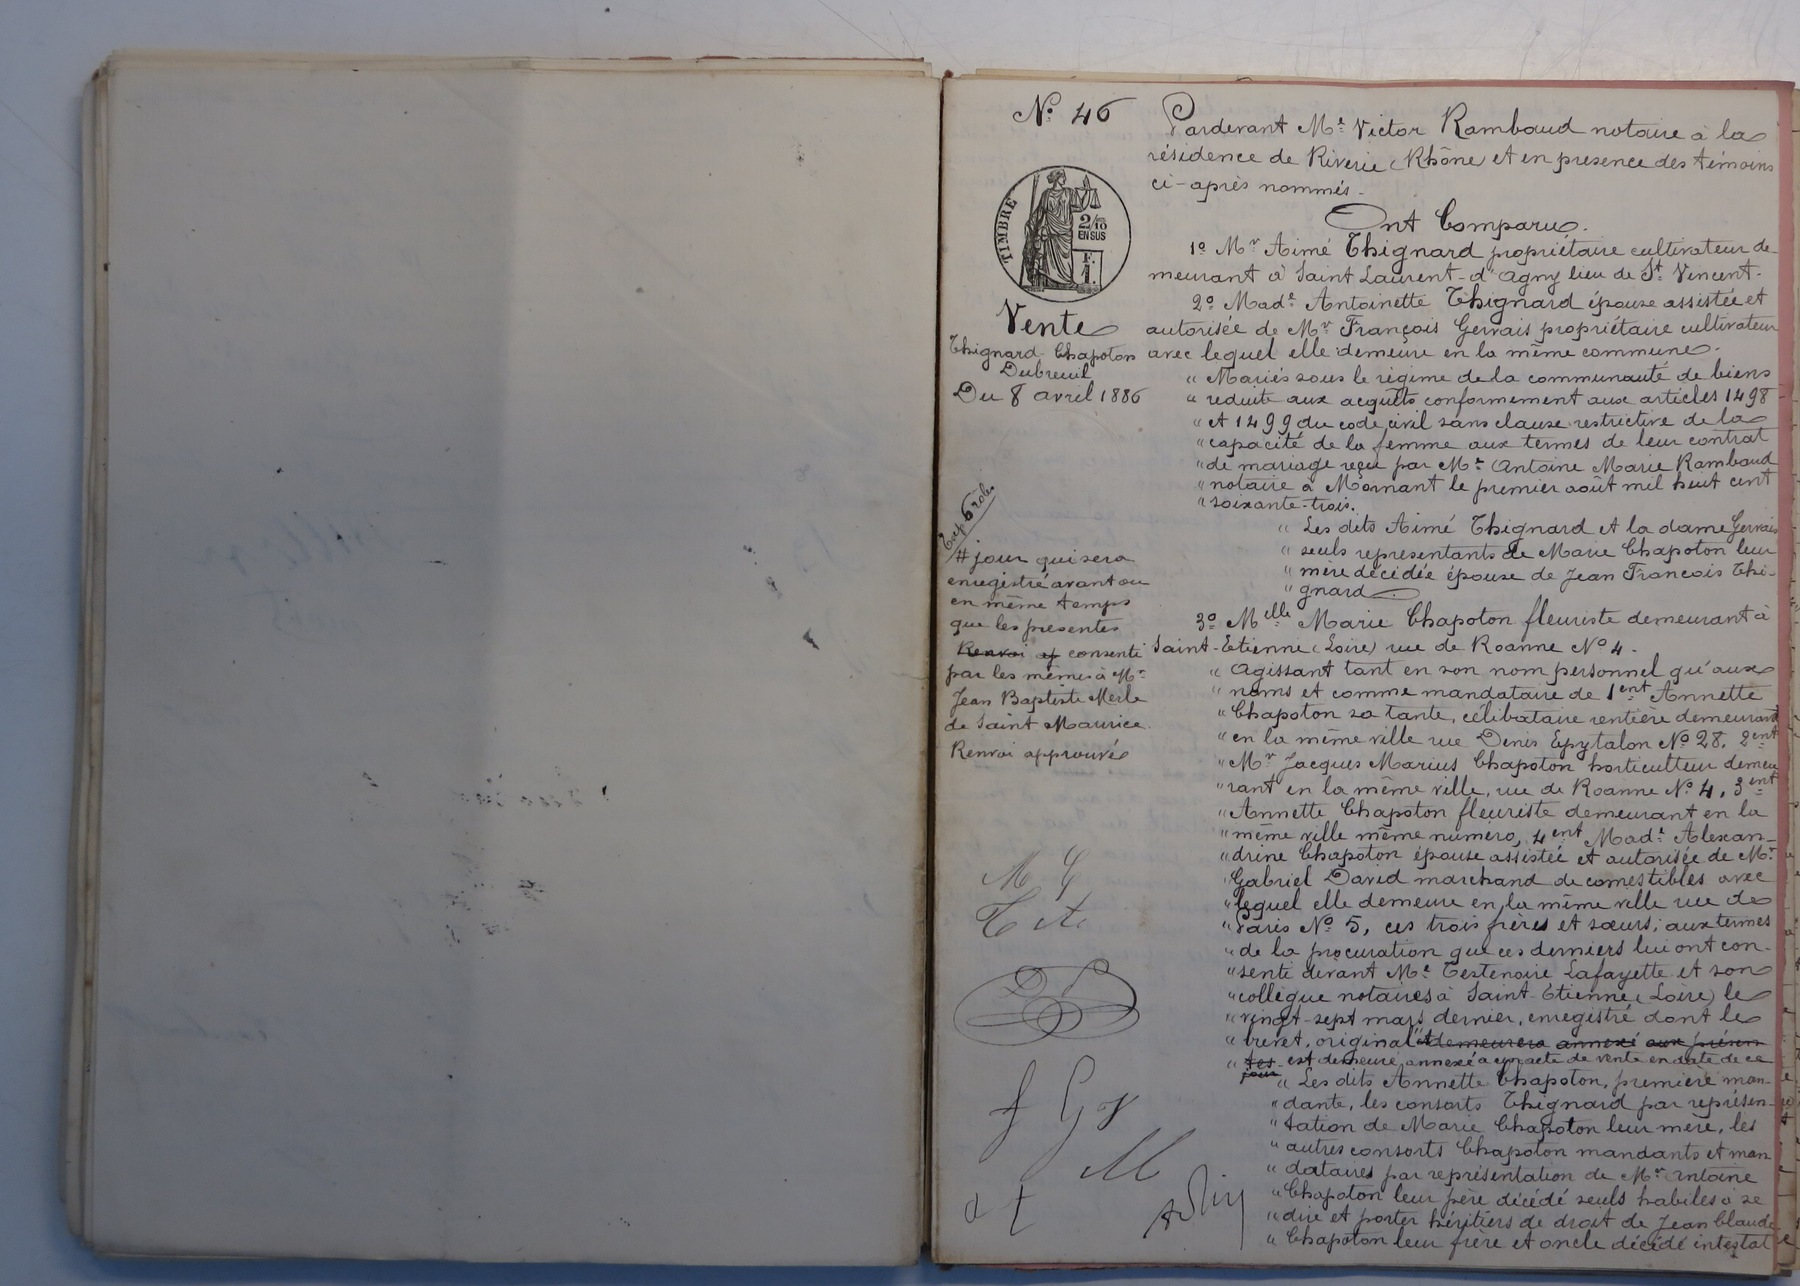 N° 46
TIMBRE
2/10
EN SUS
F.
1.
Vente
Thignard Chapoton
Dubreuil
Du 8 avril 1886
Pardevant Me Victor Rambaud notaire à la
résidence de Riverie (Rhône) et en presence des témoins
ci-après nommés.
Ont Comparu.
1° Mr Aimé Thignard propriétaire cultivateur de-
meurant à Saint Laurent-d'Agny lieu de St Vincent.
2° Made Antoinette Thignard épouse assistée et
autorisée de Mr François Gervais propriétaire cultivateur
avec lequel elle demeure en la même commune.
" Mariés sous le régime de la communauté de biens
" reduite aux acquêts conformement aux articles 1498
" et 1499 du code civil sans clause restrictive de la
" capacité de la femme aux termes de leur contrat
" de mariage reçu par Me Antoine Marie Rambaud
" notaire à Mornant le premier août mil huit cent
" soixante-trois.
" Les dits Aimé Thignard et la dame Gervais
" seuls representants de Marie Chapoton leur
" mère décédée épouse de Jean François Thi-
" gnard
3° Melle Marie Chapoton fleuriste demeurant à
Saint-Etienne (Loire) rue de Roanne N° 4.
" Agissant tant en son nom personnel qu'aux
" noms et comme mandataire de 1ent Annette
" Chapoton sa tante, célibataire rentière demeurant
" en la même ville rue Denis Epytalon N° 28, 2ent
" Mr Jacques Marius Chapoton horticulteur demeu
" rant en la même ville, rue de Roanne N° 4, 3ent
" Annette Chapoton fleuriste demeurant en la
" même ville même numéro, 4ent Made Alexan-
" drine Chapoton épouse assistée et autorisée de Mr
" Gabriel David marchand de comestibles avec
" lequel elle demeure en la même ville rue de
" Paris N° 5, ces trois frères et sœurs; aux termes
" de la procuration que ces derniers lui ont con-
" senti devant Me Testenoire Lafayette et son
" collègue notaires à Saint-Etienne (Loire) le
" vingt-sept mars dernier, enregistré dont le
" brevet, original demeurera annexé aux présen
" tes est demeuré annexé à un acte de vente en date de ce
jour
" Les dits Annette Chapoton, première man-
" dante, les consorts Thignard par représen-
" tation de Marie Chapoton leur mère, les
" autres consorts Chapoton mandants et man
" dataires par représentation de Mr Antoine
" Chapoton leur père décédé seuls habiles à se
" dire et porter héritiers de droit de Jean Claude
" Chapoton leur frère et oncle décédé intestat
# jour qui sera
enregistré avant ou
en même temps
que les présentes
Renvoi ap consenti
par les mêmes à Mr
Jean Baptiste Merle
de Saint Maurice.
Renvoi approuvé
M G